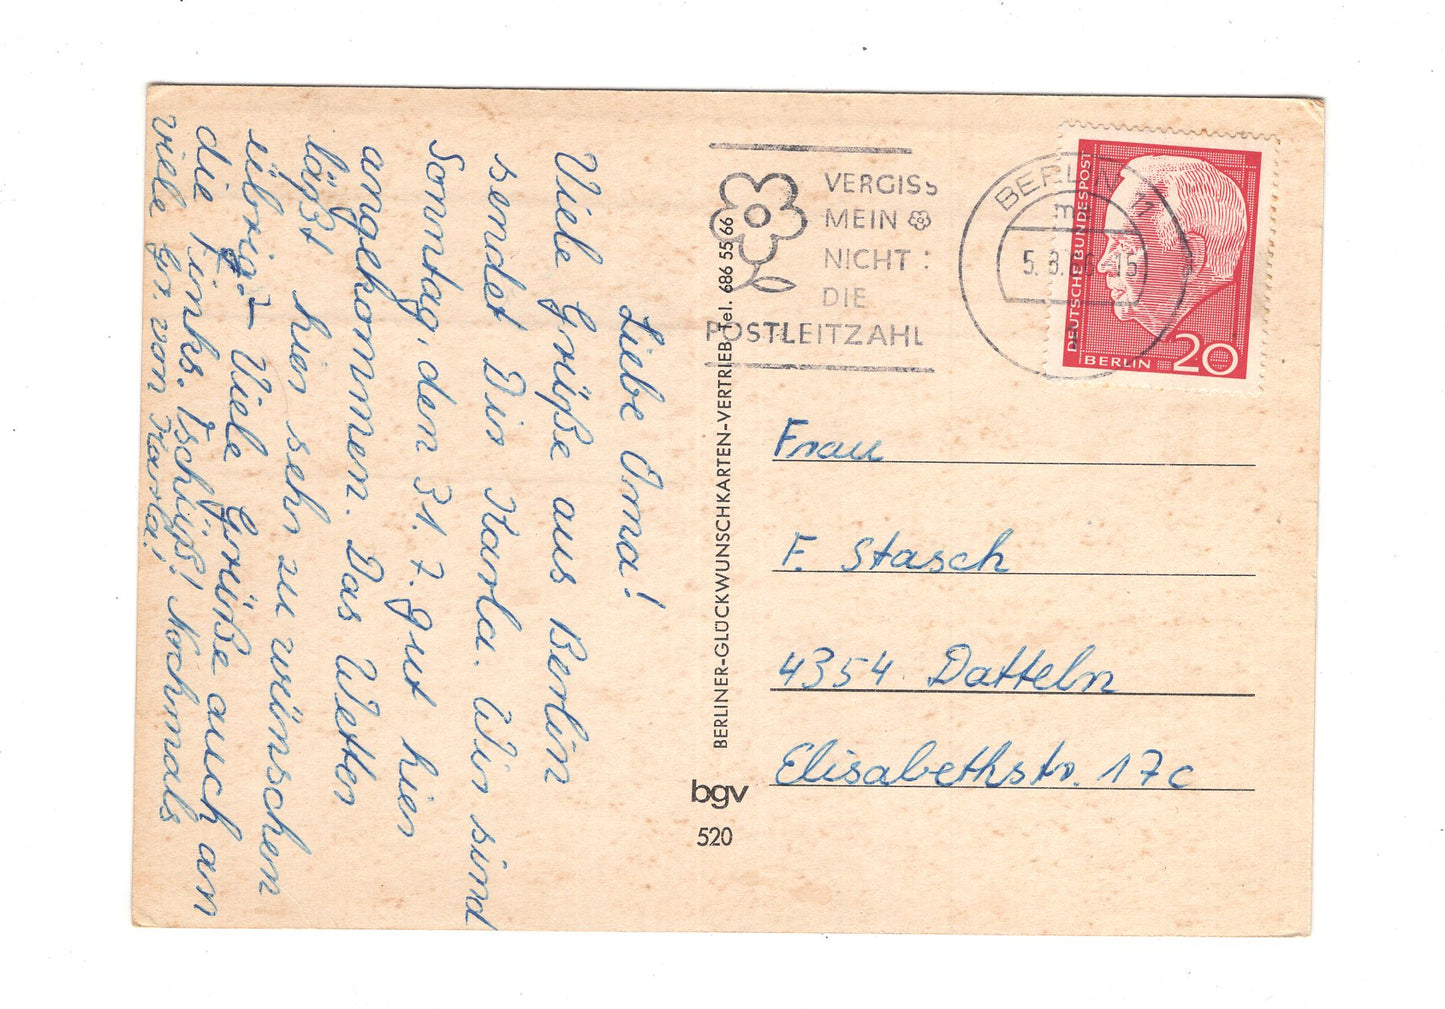 Liebe Oma!
Viele Grüße aus Berlin
sendet Dir Karla. Wir sind
Sonntag, den 31. 7. gut hier
angekommen. Das Wetter
läßt hier sehr zu wünschen
übrig. Viele Grüße auch an
die Finks. Tschüß! Nochmals
viele Gr. von Karla!
BERLINER-GLÜCKWUNSCHKARTEN-VERTRIEB Tel. 686 55 66
bgv
520
VERGISS
MEIN
NICHT:
DIE
POSTLEITZAHL
BERLIN 11
m
5. 8. -15
DEUTSCHE BUNDESPOST
BERLIN 20
Frau
F. Stasch
4354 Datteln
Elisabethstr. 17c